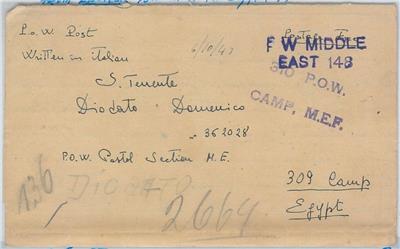 P.o.W. Post
Postal Free
6/10/43
F W MIDDLE
EAST 148
Written in italian
310 P.O.W.
CAMP, M.E.F.
S. Tenente
Diodato Domenico
n° 362028
P.O.W. Postal Section M.E.
309 Camp
Egypt
136
DIODATO
2664